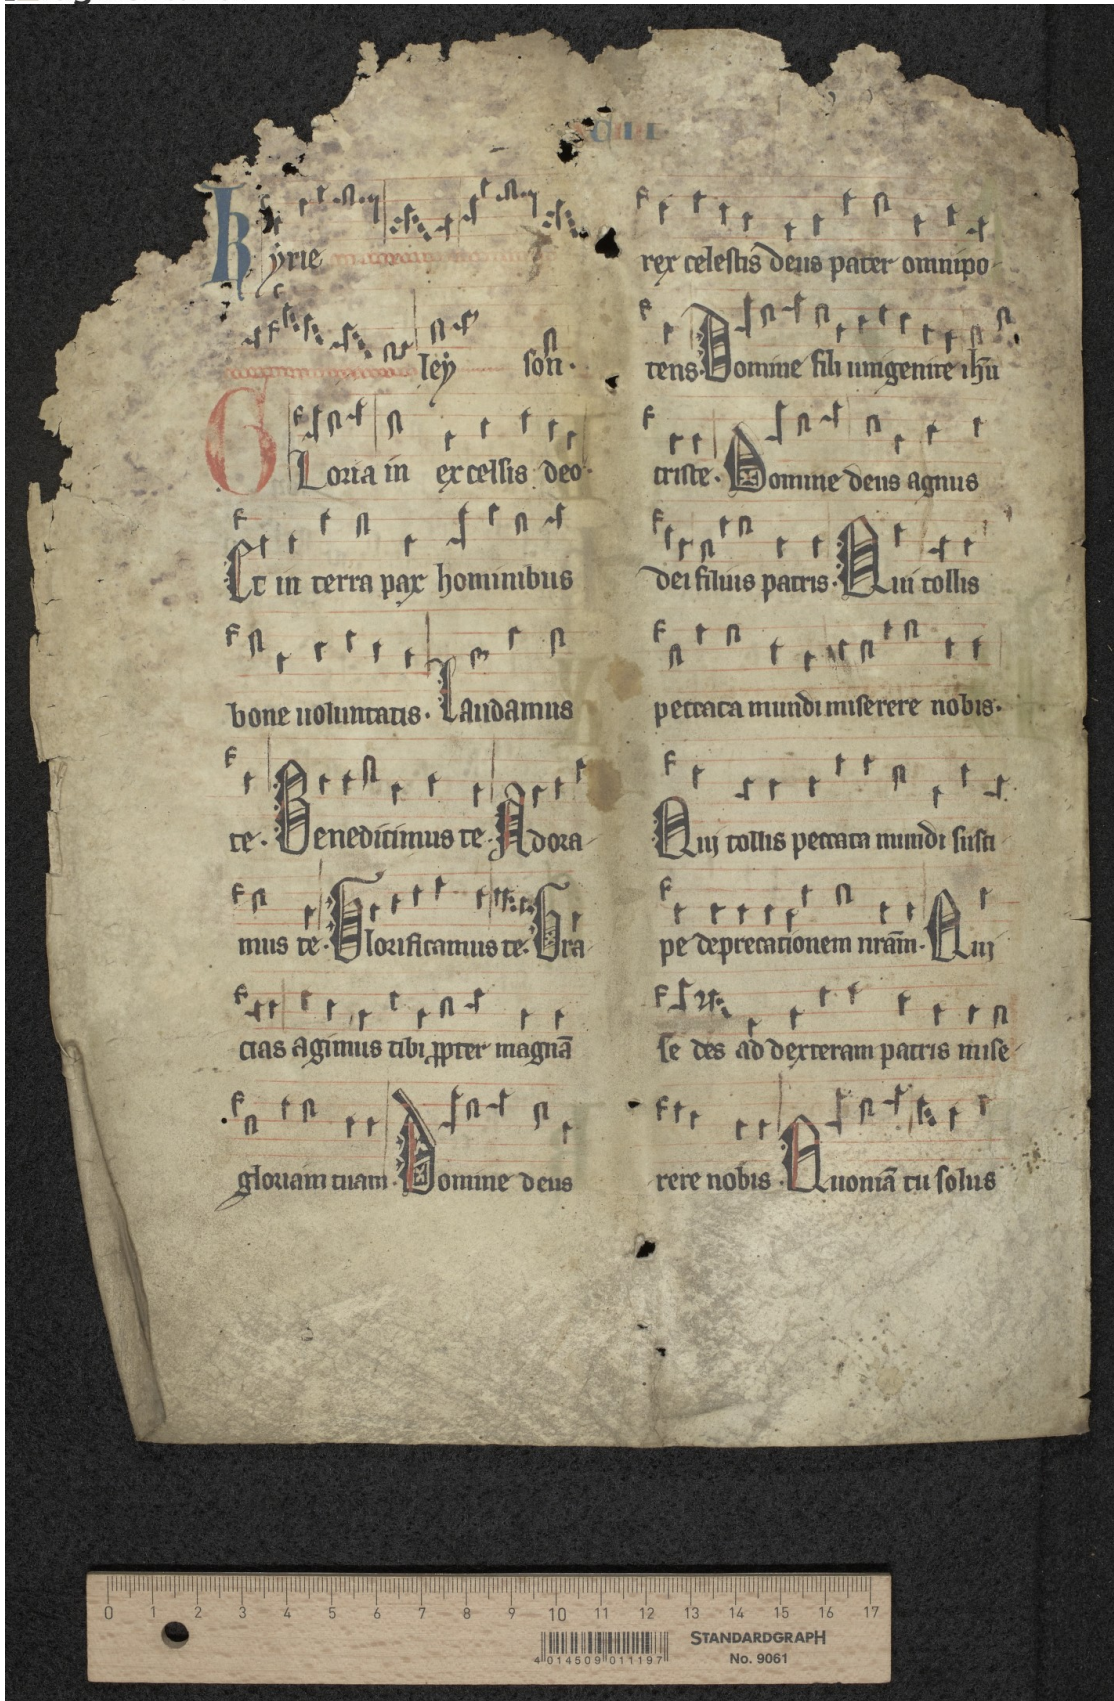 Kyrie
ley son.
Gloria in excelsis deo.
Et in terra pax hominibus
bone uoluntatis. Laudamus
te. Benedicimus te. Adora
mus te. Glorificamus te. Gra
cias agimus tibi ꝓpter magnā
gloriam tuam. Domine deus
rex celestis deus pater omnipo
tens. Domine fili unigenite ihū
criste. Domine deus agnus
dei filius patris. Qui tollis
peccata mundi miserere nobis.
Qui tollis peccata mundi susci
pe deprecationem nrām. Qui
se des ad dexteram patris mise
rere nobis. Quoniā tu solus
0 1 2 3 4 5 6 7 8 9 10 11 12 13 14 15 16 17
STANDARDGRAPH
No. 9061
4 014509 011197